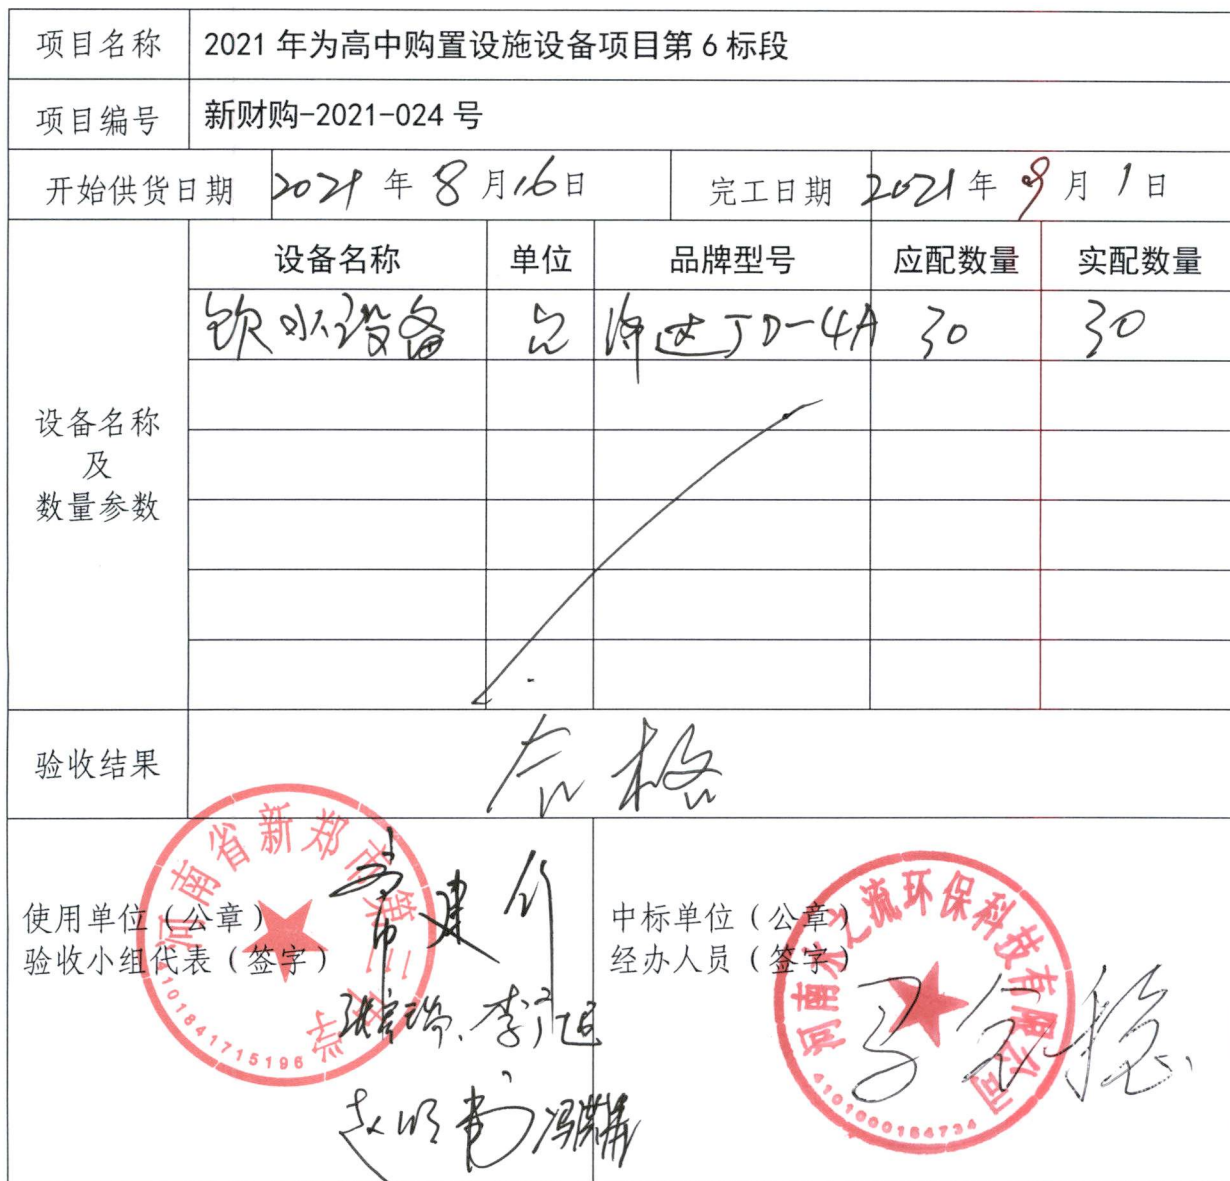 项目名称 2021年为高中购置设施设备项目第6标段
项目编号 新财购-2021-024号
开始供货日期 2021年8月16日 完工日期 2021年9月1日
设备名称 单位 品牌型号 应配数量 实配数量
饮水设备 台 泽达JD-4A 30 30
设备名称
及
数量参数
验收结果 合格
使用单位（公章）
验收小组代表（签字）
河南省新郑市第三中学
4101841715196
李广旭
中标单位（公章）
经办人员（签字）
河南水之流环保科技有限公司
4101000184734